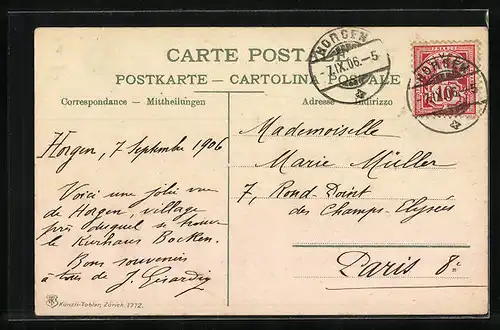 CARTE POSTALE
POSTKARTE - CARTOLINA POSTALE
Correspondance - Mittheilungen
Adresse - Indirizzo
HORGEN
7.IX.06.-5
HORGEN
10
Horgen, 7 Septembre 1906
Voici une jolie vue
de Horgen, village
près duquel se trouve
le Kurhaus Bocken.
Bons souvenirs
à tous de J. Girardin
Mademoiselle
Marie Müller
7, Rond Point
des Champs-Elysées
Paris 8e
Künzli-Tobler, Zürich. 1772.